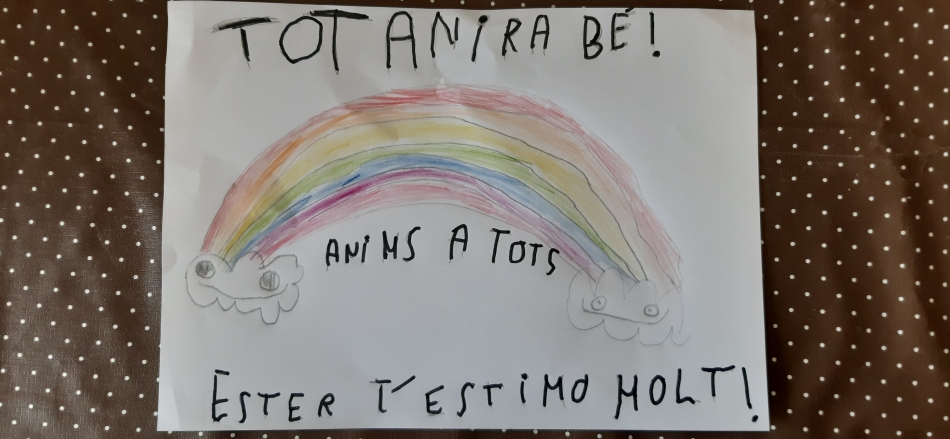 TOT ANiRA BÉ!
ANiMS A TOTS
ESTER T'ESTiMO MOLT!